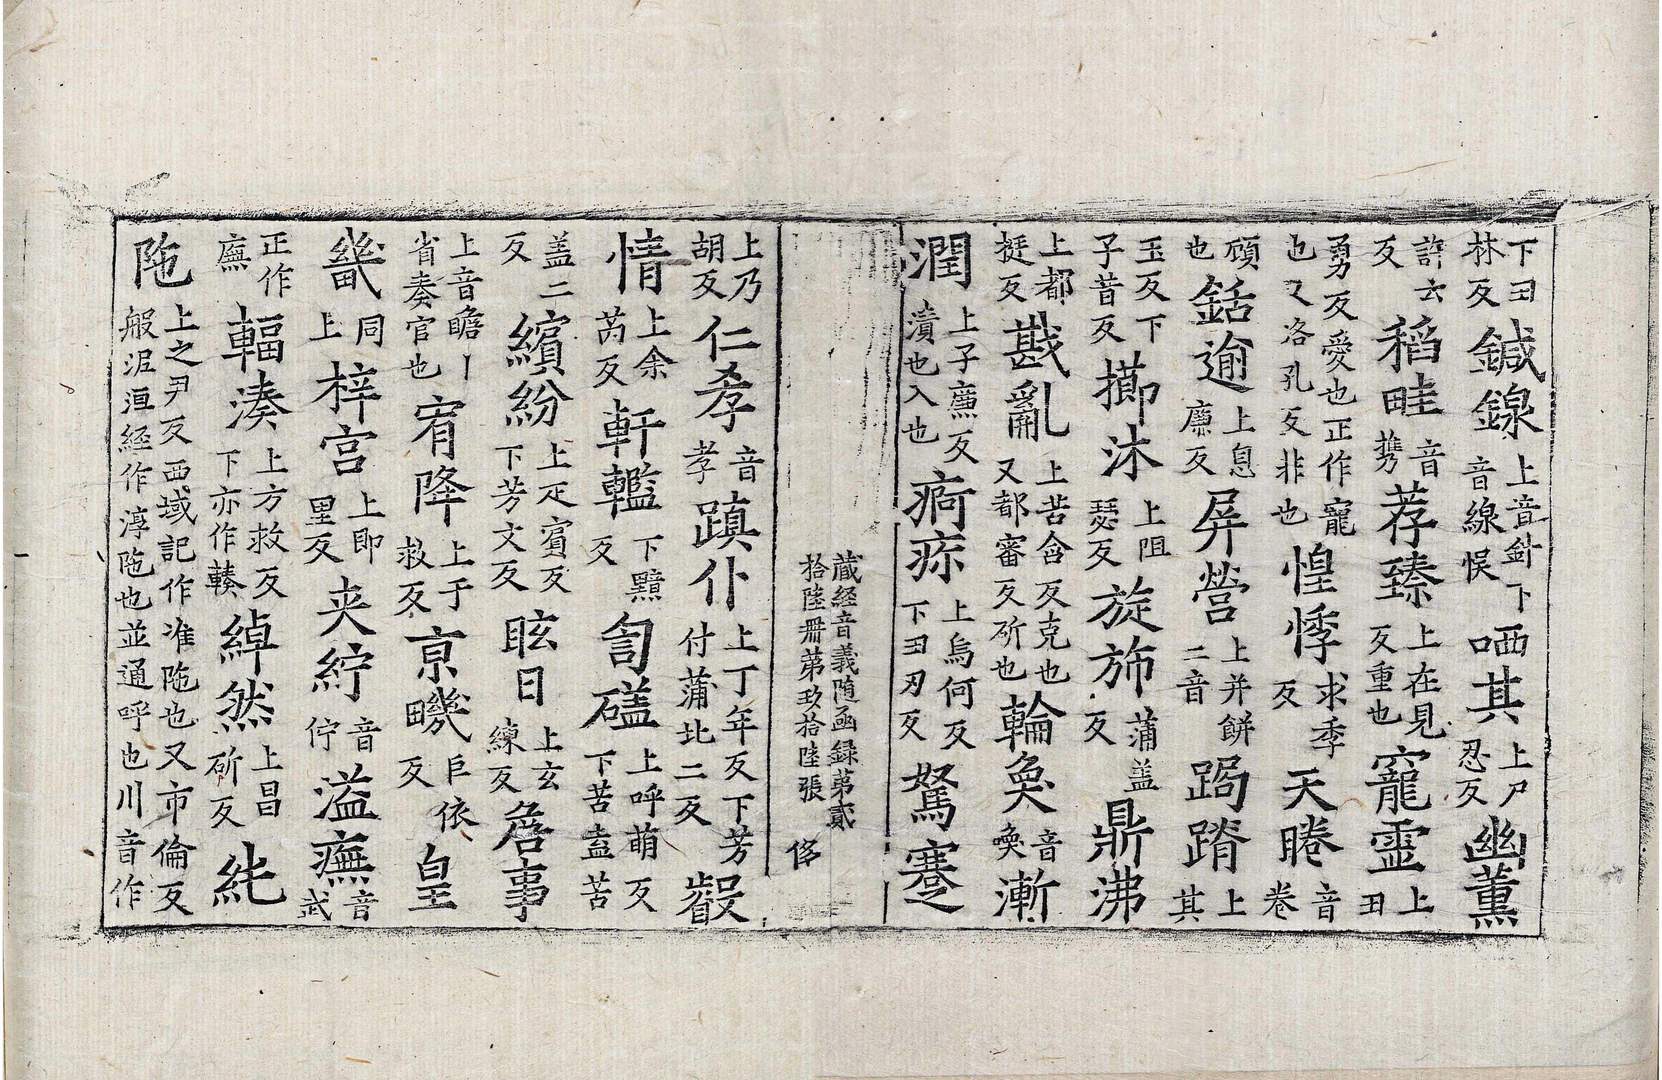 下田林反鍼鎳上音針下音線悞哂其上尸忍反幽薰
許六反稻畦音攜荐臻上在見反重也竉靈上田
勇反愛也正作寵也又洛孔反非也惶悸求季反天睠音卷
頎也銛逾上息廉反屏營上并餅二音跼蹐上其
玉反下子昔反擳沐上阻瑟反旋斾蒲盖反鼎沸
上都挺反戡亂上苦含反克也又都審反斫也輪奐音喚漸
潤上子廉反瀆也入也痾疢上烏何反下丑刃反駑蹇
藏經音義随函録第貳拾陸冊第玖拾陸張 侈
上乃胡反仁孝音孝蹎仆上丁年反下芳付蒲北二反叡
情上余芮反軒轞下黤反訇磕上呼萌反下苦盍苦
盖二反繽紛上疋賓反下芳文反眩日上玄練反詹事
上音瞻丨省奏官也宥降上于救反京畿巨依反皇
畿同上梓宮上即里反夾紵音佇溢廡音武
正作廡輻湊上方救反下亦作輳綽然上昌斫反純
陁上之尹反西域記作准陁也又市倫反般泥洹經作淳陁也並通呼也川音作